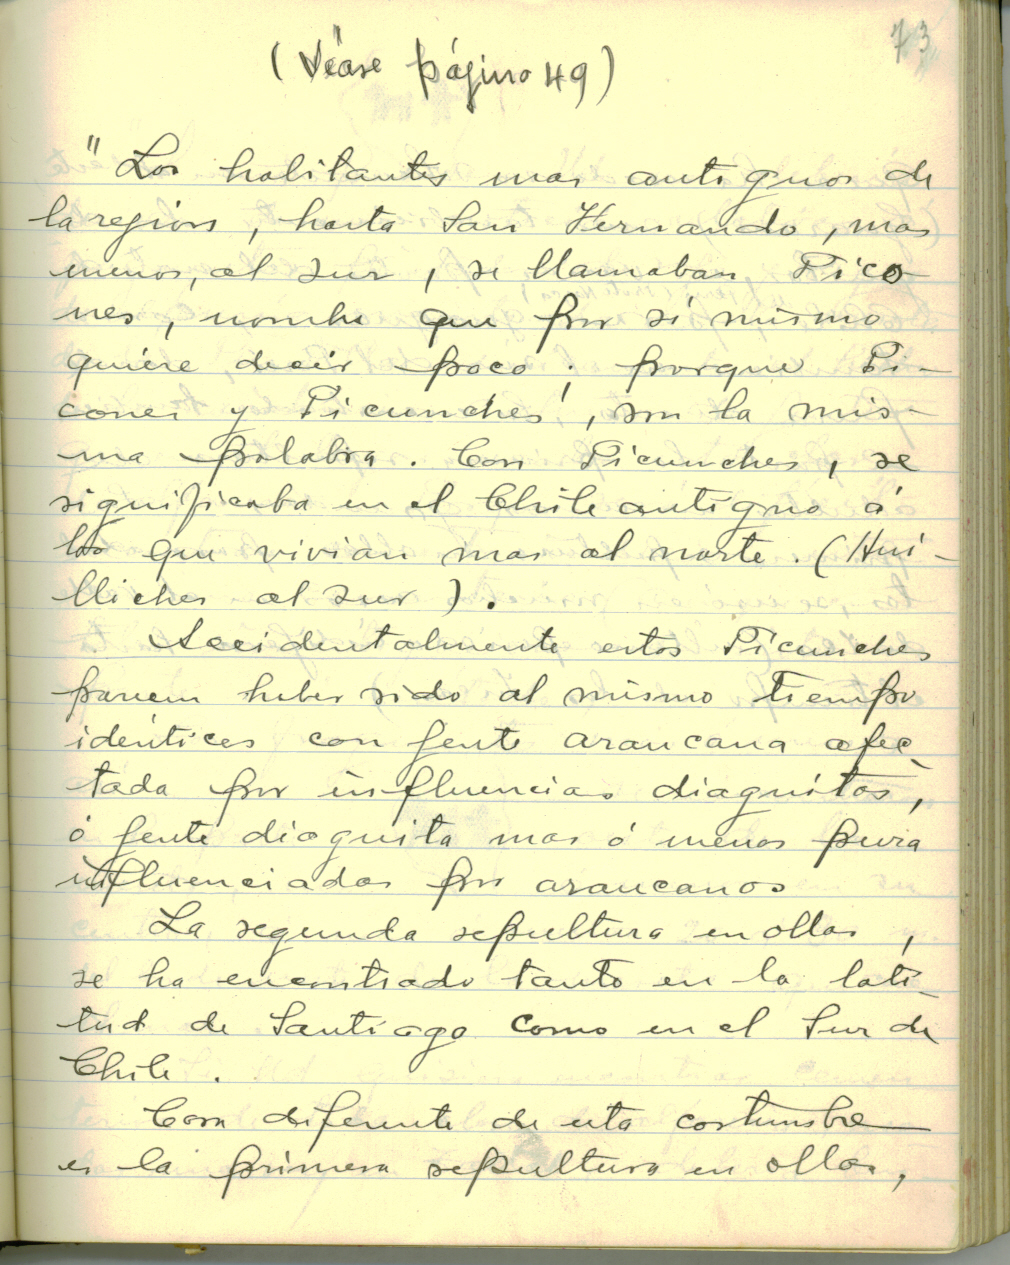 73
(Véase página 49)
"Los habitantes mas antiguos de
la region, hasta San Fernando, mas
menos, al sur, se llamaban Pico
nes, nombre que por si mismo
quiere decir poco; porque Pi-
cones y Picunches, son la mis-
ma palabra. Con Picunches, se
significaba en el Chile antiguo á
los que vivian mas al norte. (Hui-
lliches al sur).
Accidentalmente estos Picunches
parecen haber sido al mismo tiempo
idénticos con gente araucana afec
tada por influencias diaguitas,
ó gente diaguita mas ó menos pura
influenciados por araucanos
La segunda sepultura en ollas,
se ha encontrado tanto en la lati
tud de Santiago como en el Sur de
Chile.
Cosa diferente de esta costumbre
es la primera sepultura en ollas,